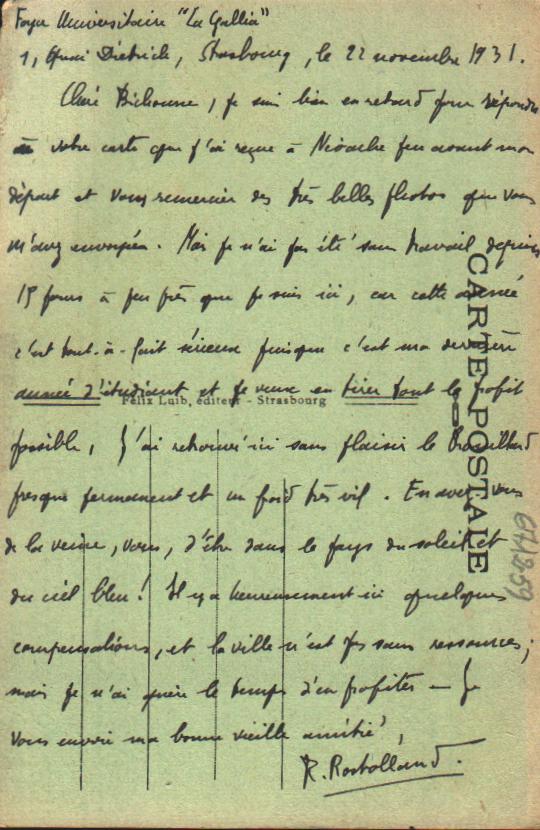 Foyer Universitaire "La Gallia"
1, Quai Dietrich, Strasbourg, le 22 novembre 1931.
Cher Bichonne, je suis bien en retard pour répondre
à votre carte que j'ai reçue à Névache peu avant mon
départ et vous remercier des très belles photos que vous
m'avez envoyées. Mais je n'ai pas été sans travail depuis
15 jours à peu près que je suis ici, car cette année
c'est tout-à-fait sérieux puisque c'est ma dernière
année d'étudiant et je veux en tirer tout le profit
Félix Luib, éditeur - Strasbourg
possible, J'ai retrouvé ici sans plaisir le brouillard
presque permanent et un froid très vif. En avez vous
de la veine, vous, d'être dans le pays du soleil et
du ciel bleu! Il y a heureusement ici quelques
compensations, et la ville n'est pas sans ressources;
mais je n'ai guère le temps d'en profiter — Je
vous envoie ma bonne vieille amitié,
R. Rostolland.
CARTE POSTALE